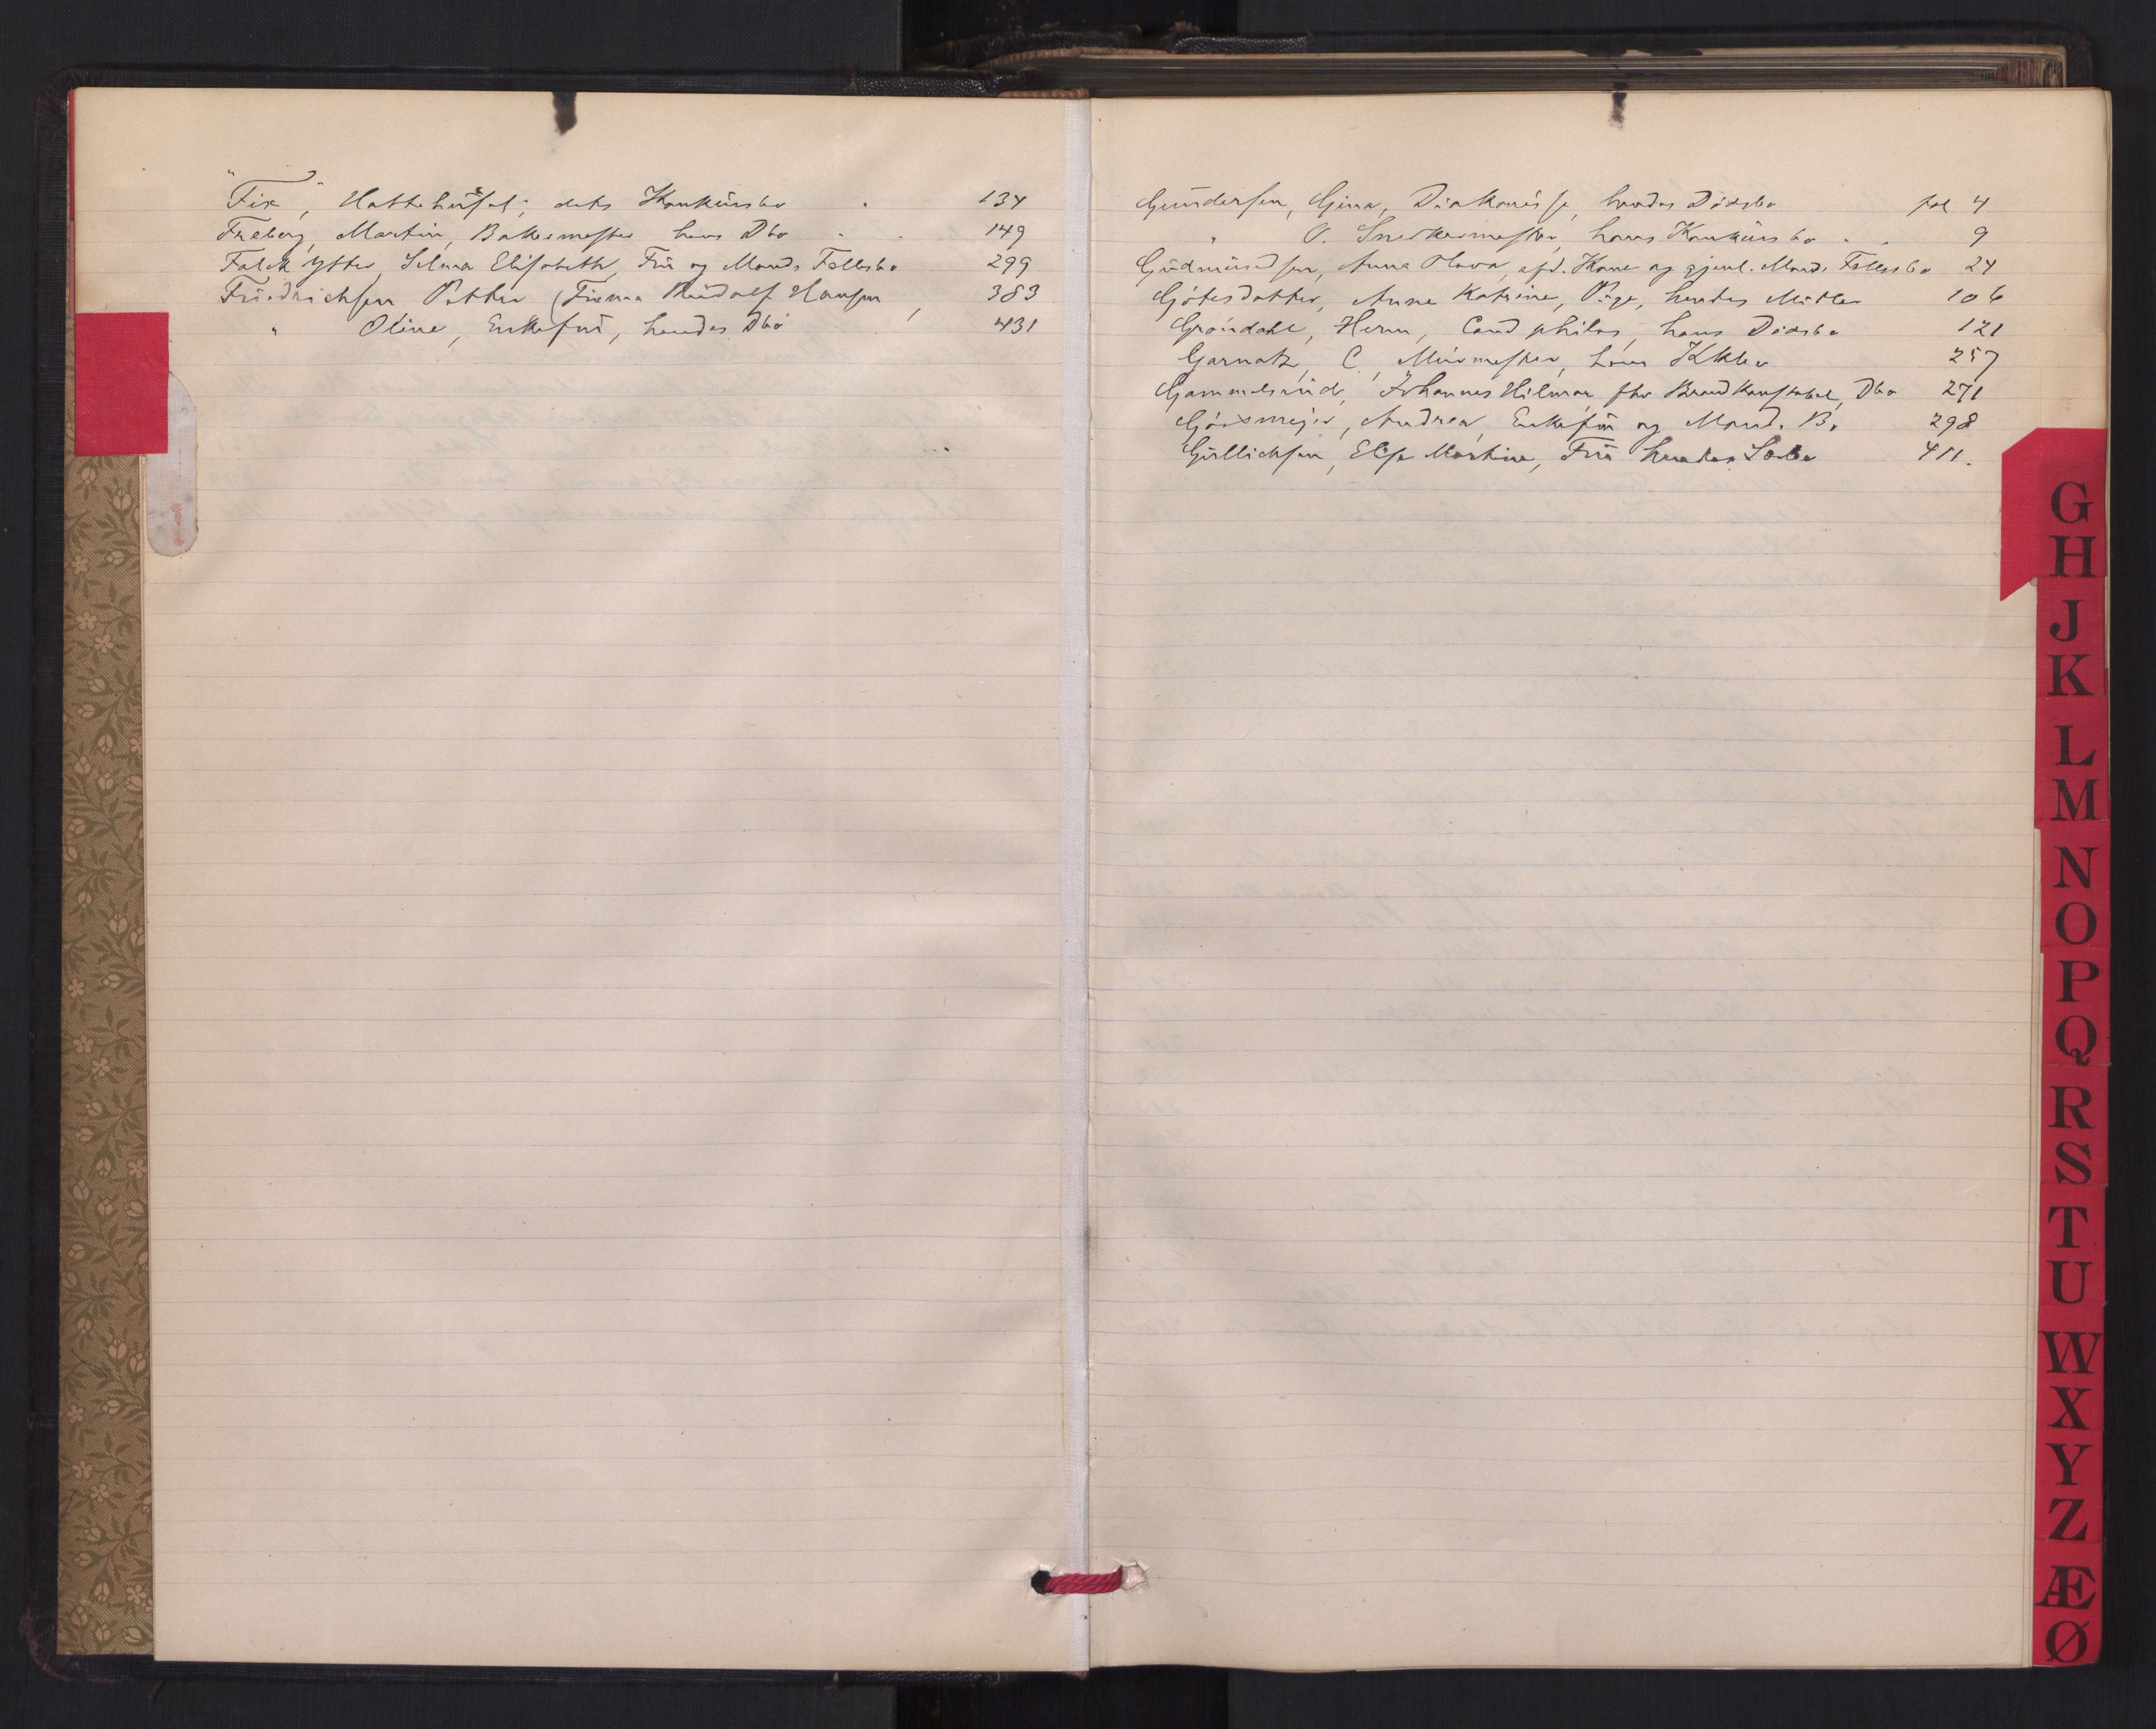 "Fix", Hattehuset, dets Konkursbo " 134
Freberg, Martin, Bakermester hans Dbo " " 149
Falck Ytter, Selma Elisabeth, Fru og Mands Fællesbo 299
Friedrichsen Petter (Firma Rudolf Hansen, 383
" Oline, Enkefru, hendes Dbo 431
Gundersen, Gina, Diakonisse, hendes Dødsbo fol 4
" O. Snedkermester, hans Konkursbo " " 9
Gudmundsen, Anna Olava, afd. Kone og gjenl. Mands Fællesbo 24
Katrine, Pige, hendes Midler 106
Grøndahl, Herm, Cand philos, hans Dødsbo 121
Garnatz, C, Murmester, hans Kkbo 257
Gammelsrud, Johannes Hilmar, fhv Brandkonstabel, Dbo 271
Andrea, Enkefru og Mands Bo 298
Gullichsen, Elise Martine, Fru hendes Særbo 411.
G
H
J
K
L
M
N
O
P
Q
R
S
T
U
W
X
Y
Z
Æ
Ø